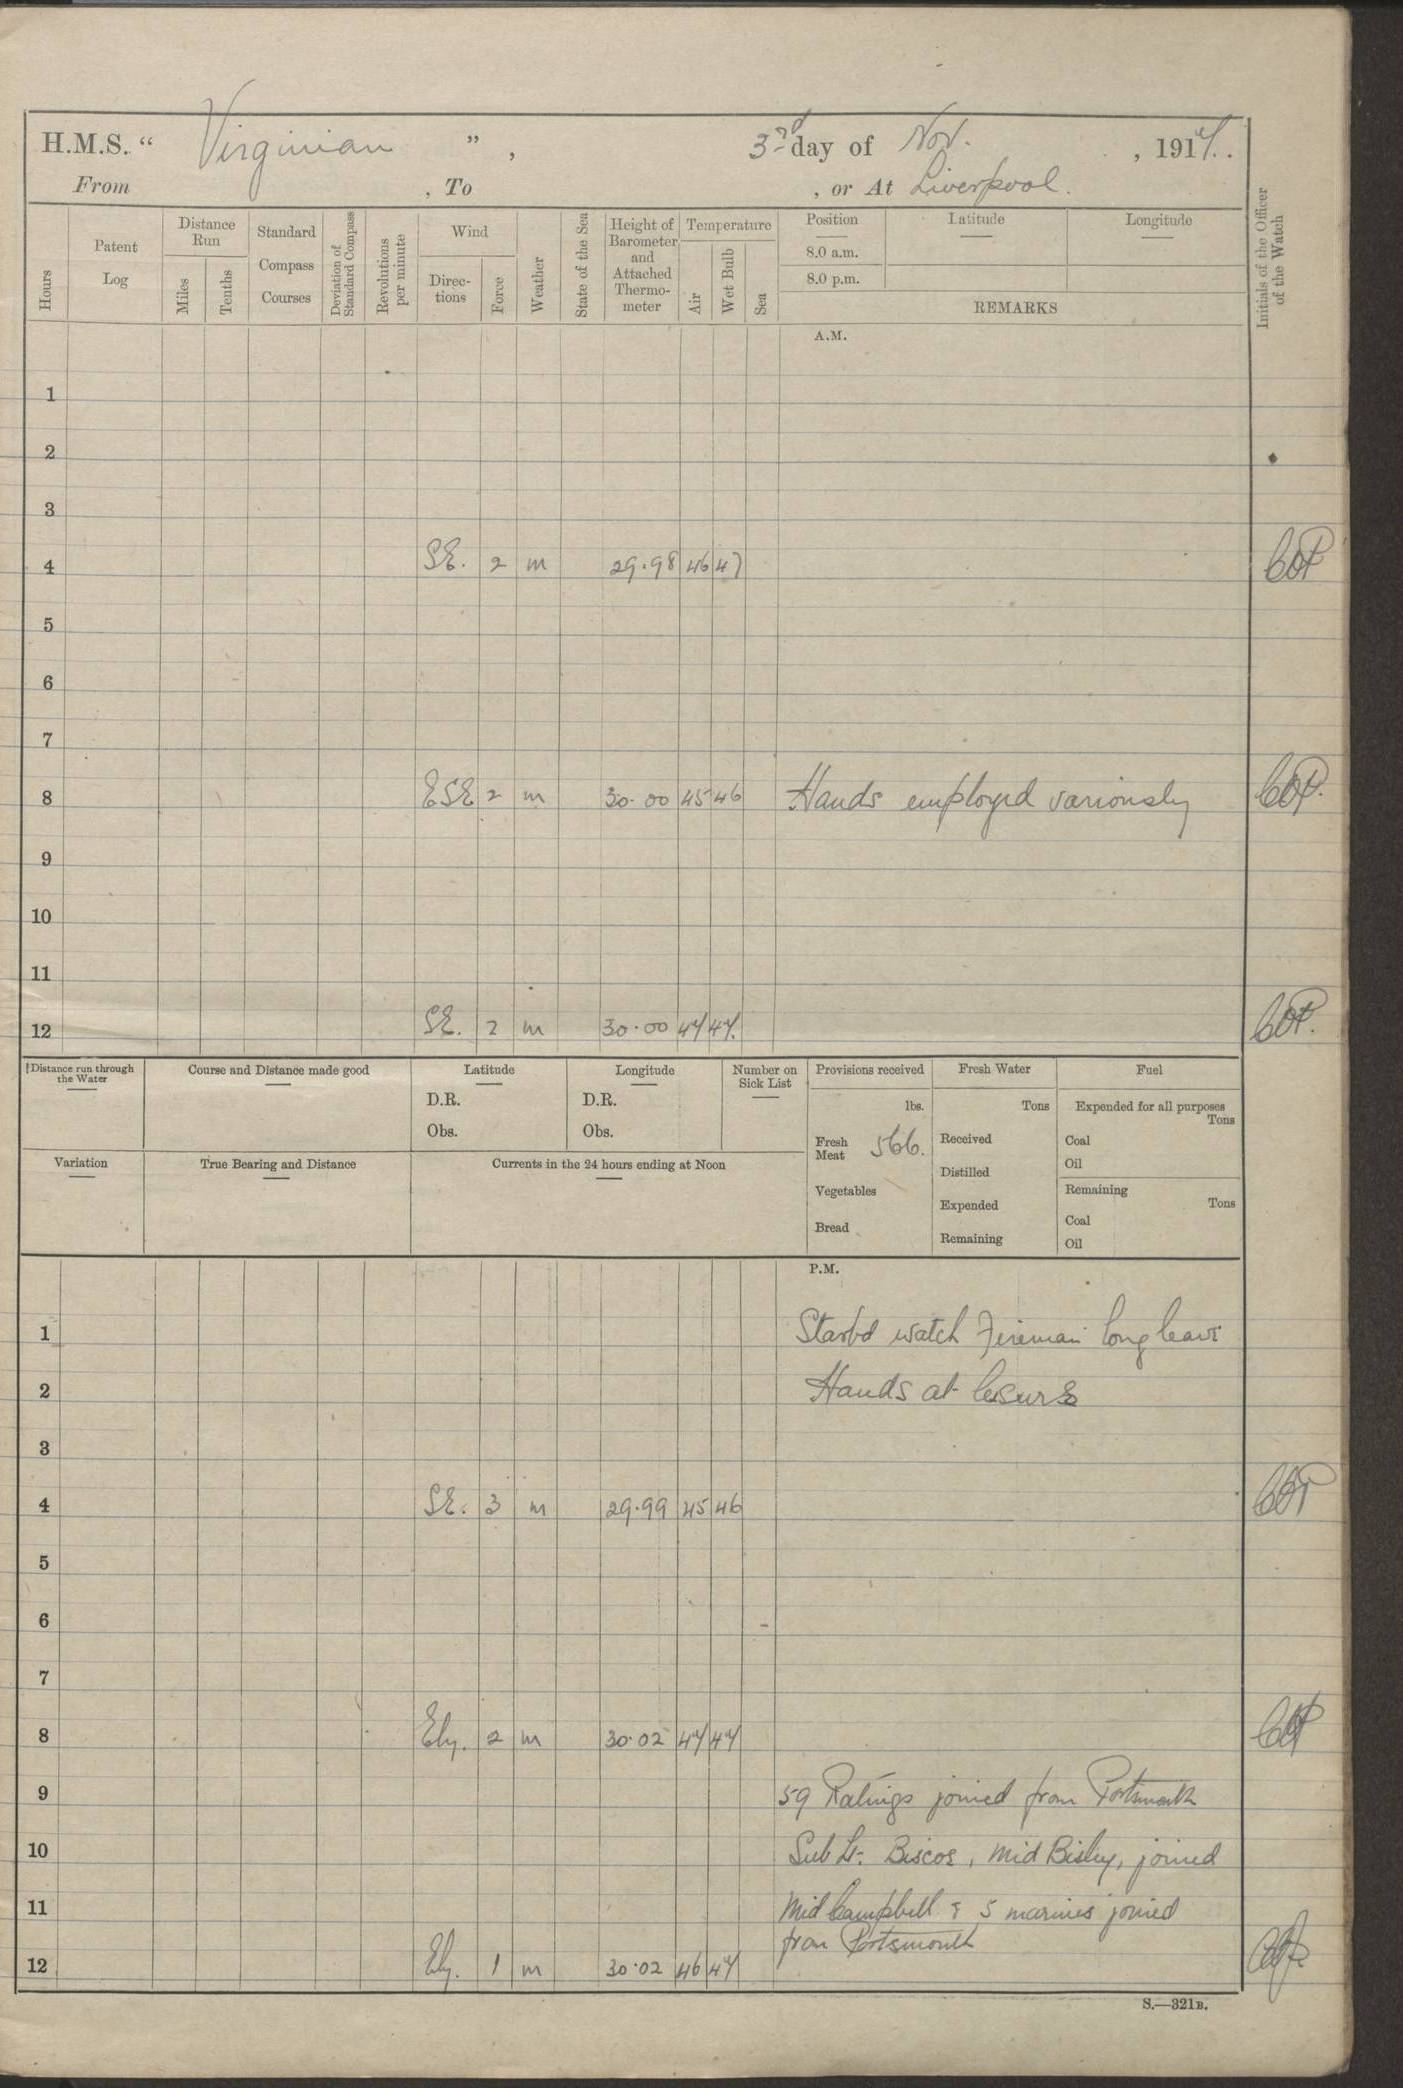 H.M.S. " Virginian " , 3rd day of Nov. , 1914.
From , To , or At Liverpool.
Hours
Patent Log
Distance Run
Miles
Tenths
Standard Compass Courses
Deviation of Standard Compass
Revolutions per minute
Wind
Directions
Force
Weather
State of the Sea
Height of Barometer and Attached Thermometer
Temperature
Air
Wet Bulb
Sea
Position
8.0 a.m.
8.0 p.m.
Latitude
Longitude
REMARKS
Initials of the Officer of the Watch
A.M.
1
2
3
4 SE. 2 m 29.98 46 47
5
6
7
8 ESE 2 m 30.00 45 46 Hands employed variously
9
10
11
12 SE. 2 m 30.00 47 47.
Distance run through the Water
Course and Distance made good
Latitude
D.R.
Obs.
Longitude
D.R.
Obs.
Number on Sick List
Provisions received
lbs.
Fresh Meat 566.
Vegetables
Bread
Fresh Water
Tons
Received
Distilled
Expended
Remaining
Fuel
Expended for all purposes
Tons
Coal
Oil
Remaining
Tons
Coal
Oil
Variation
True Bearing and Distance
Currents in the 24 hours ending at Noon
P.M.
1 Starbd watch Fireman long leave
2 Hands at lesure
3
4 SE. 3 m 29.99 45 46
5
6
7
8 Ely. 2 m 30.02 47 47
9 59 Ratings joined from Portsmouth
10 Sub Lt. Biscoe, Mid Bisley, joined
11 Mid Campbell & 5 marines joined
from Portsmouth
12 Ely. 1 m 30.02 46 47
S.—321B.